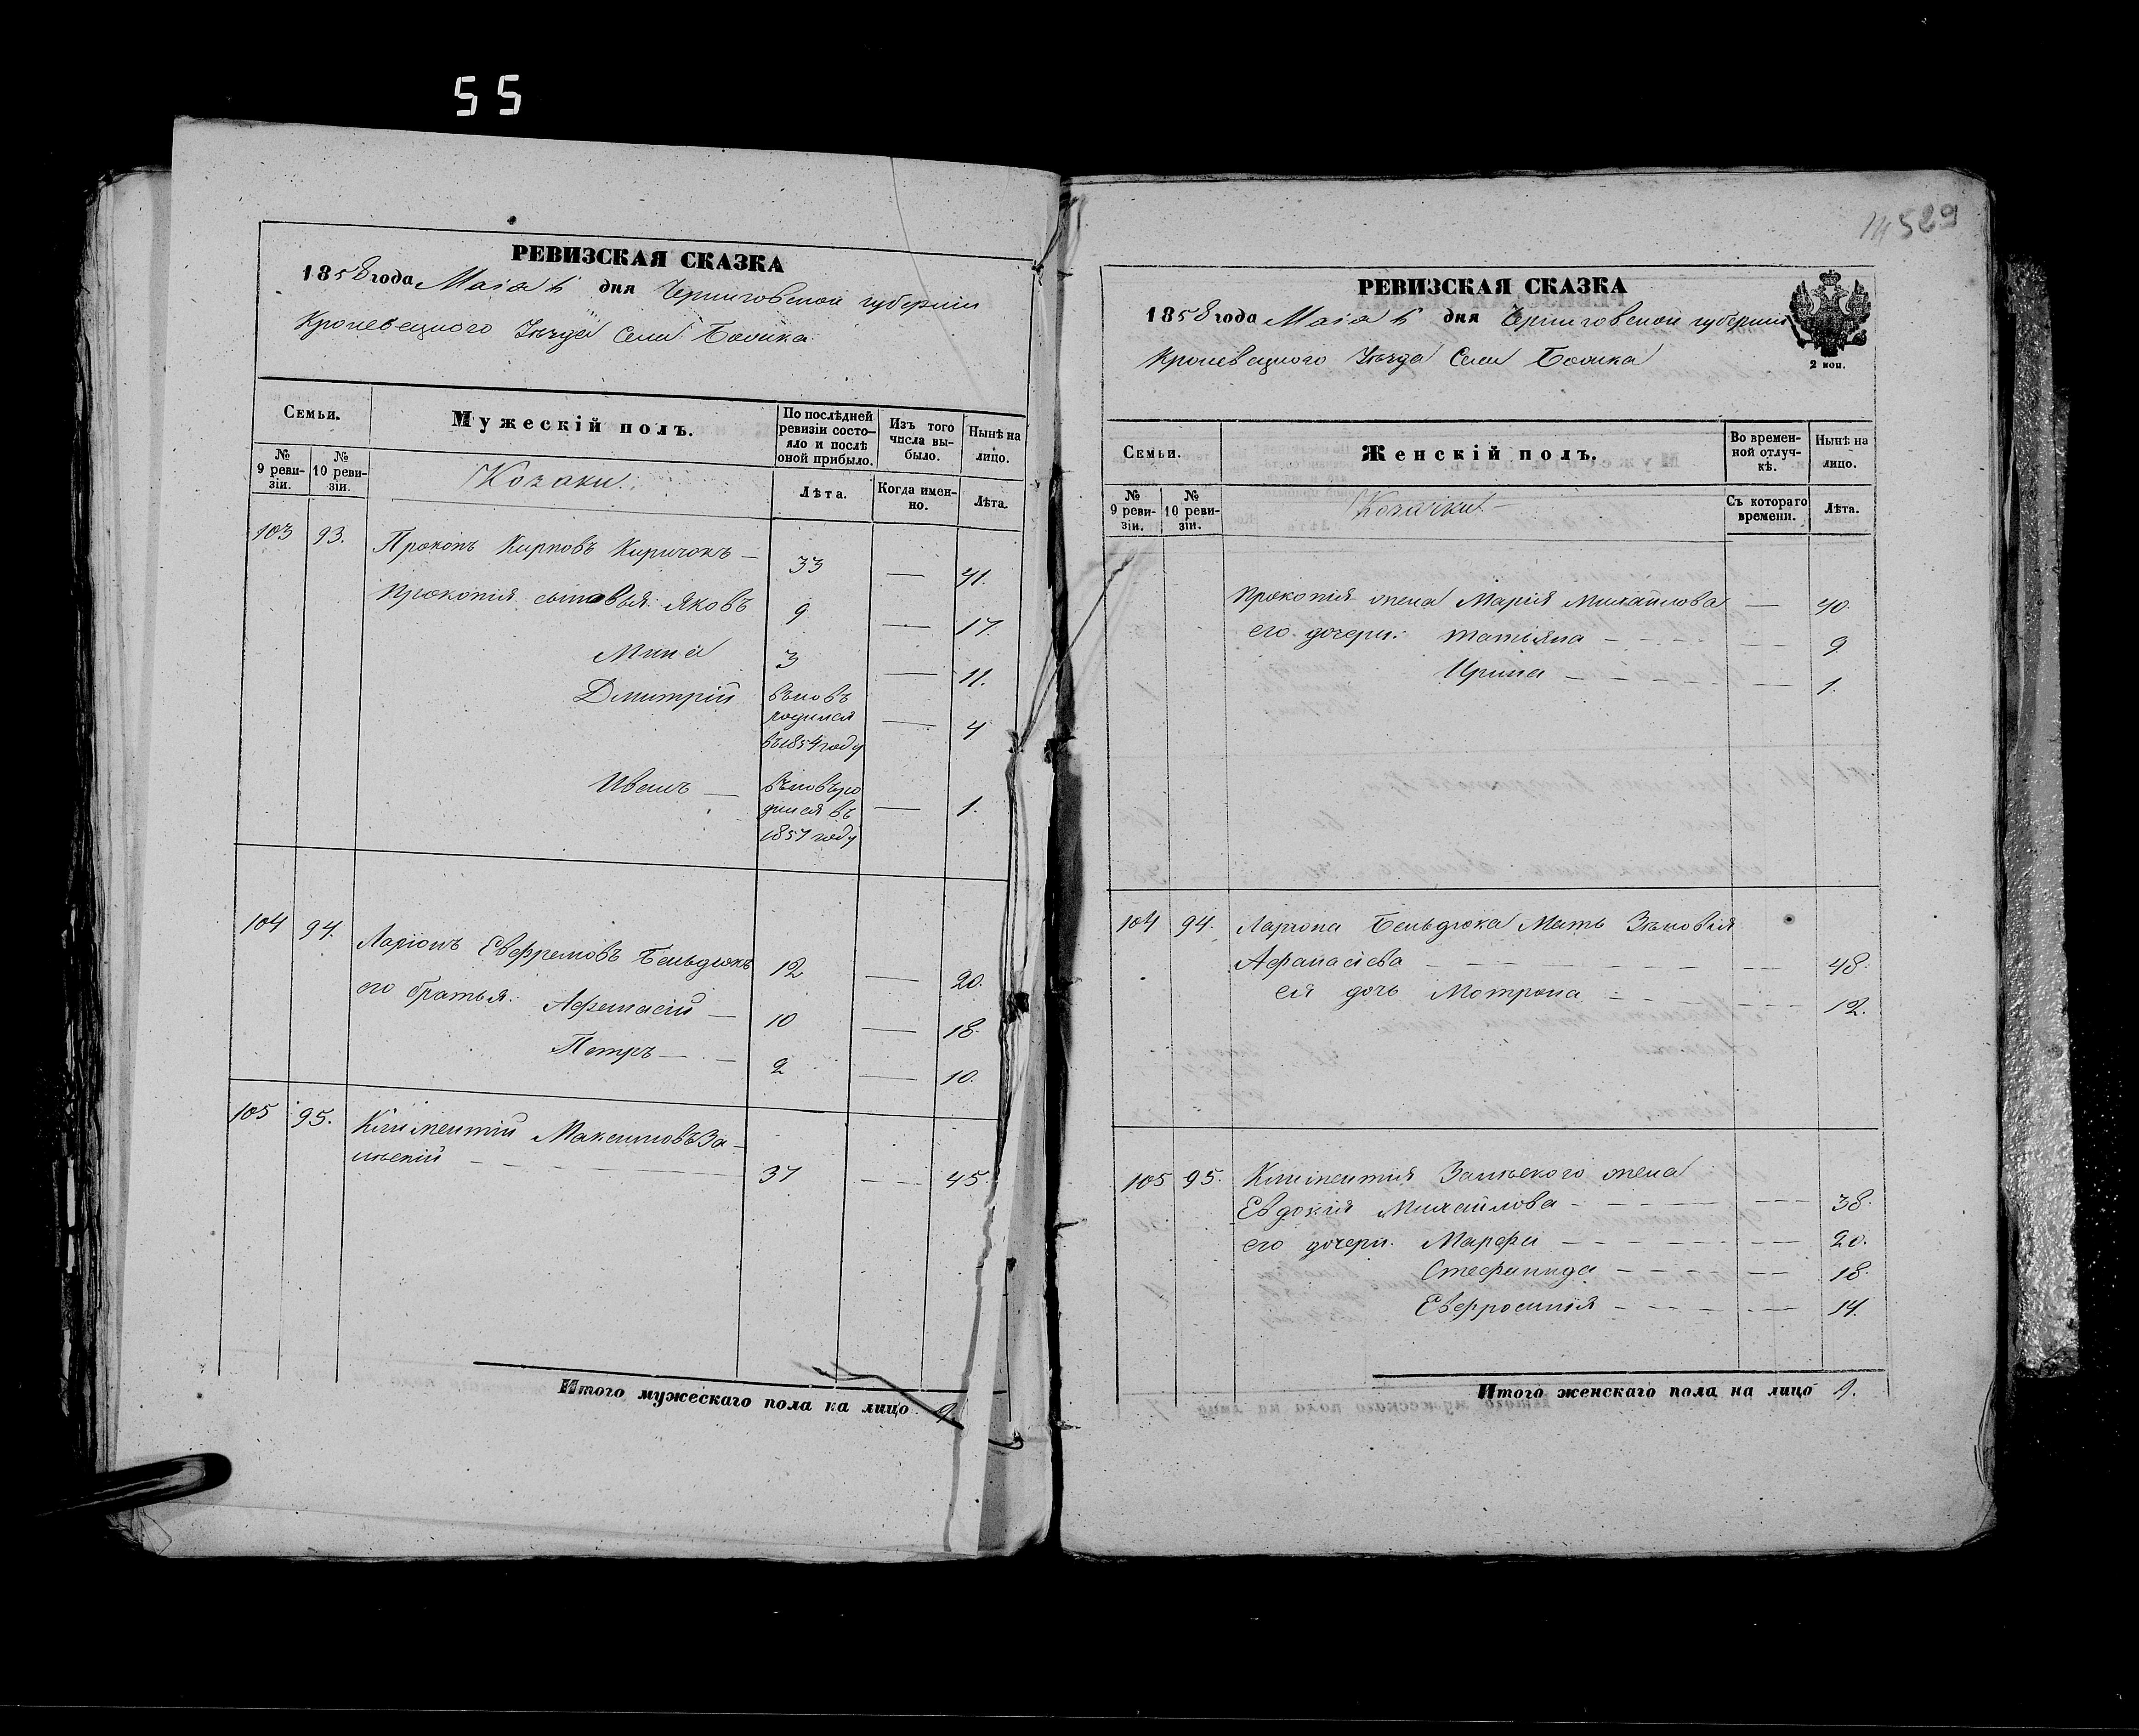 55
РЕВИЗСКАЯ СКАЗКА
1858 года Маія 6 дня Черниговской губерніи
Кролевецкого Уѣзда Села Бочика
Семьи.
Мужескій полъ.
По послѣдней ревизіи состо-
яло и послѣ
оной прибыло.
Изъ того
числа вы-
было.
Нынѣ на
лицо.
№
9 реви-
зіи.
№
10 реви-
зіи.
Козаки.
Лѣта.
Когда имен-
но.
Лѣта.
103 93. Прокопъ Карповъ Киричокъ — 33 — 41.
Прокопія сыновья: Яковъ 9 — 17.
Мина 3 — 11.
Дмитрій вновь
родился
въ 1854 году — 4
Иванъ — вновь ро
дился въ
1857 году — 1.
104 94. Ларіонъ Евфремовъ Бельдюкъ 12 — 20.
его братья: Афанасій — 10 — 18.
Петръ — — 2 — 10.
105 95. Климентій Максимовъ За-
лѣскій 37 — — 45
Итого мужескаго пола на лицо 9
589
РЕВИЗСКАЯ СКАЗКА
1858 года Маія 6 дня Черниговской губерніи
Кролевецкого Уѣзда Села Бочика
2 коп.
Семьи.
Женскій полъ.
Во времен-
ной отлуч-
кѣ.
Нынѣ на
лицо.
№
9 реви-
зіи.
№
10 реви-
зіи.
Козачки
Съ котораго
времени.
Лѣта.
Прокопія жена Марія Михайлова — 40.
его дочери: Татьяна — — 9
Ирина — — 1.
104 94. Ларіона Бельдюка Мать Зѣновія
Афанасіева — — 48.
ея дочь Мотрона — — 12.
105 95. Климентія Залѣского жена
Евдокія Михайлова — — 38.
его дочери: Марфа — — 20.
Стефанида — — 18.
Евфросинія — — 14.
Итого женскаго пола на лицо 9.